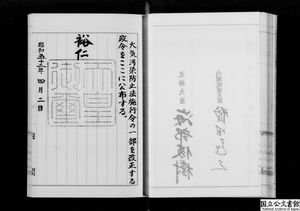 大気汚染防止法施行令の一部を改正する
政令をここに公布する。
裕仁
天皇御璽
昭和五十三年四月二日
内閣総理大臣
文部大臣 海部俊樹
国立公文書館
National Archives of Japan